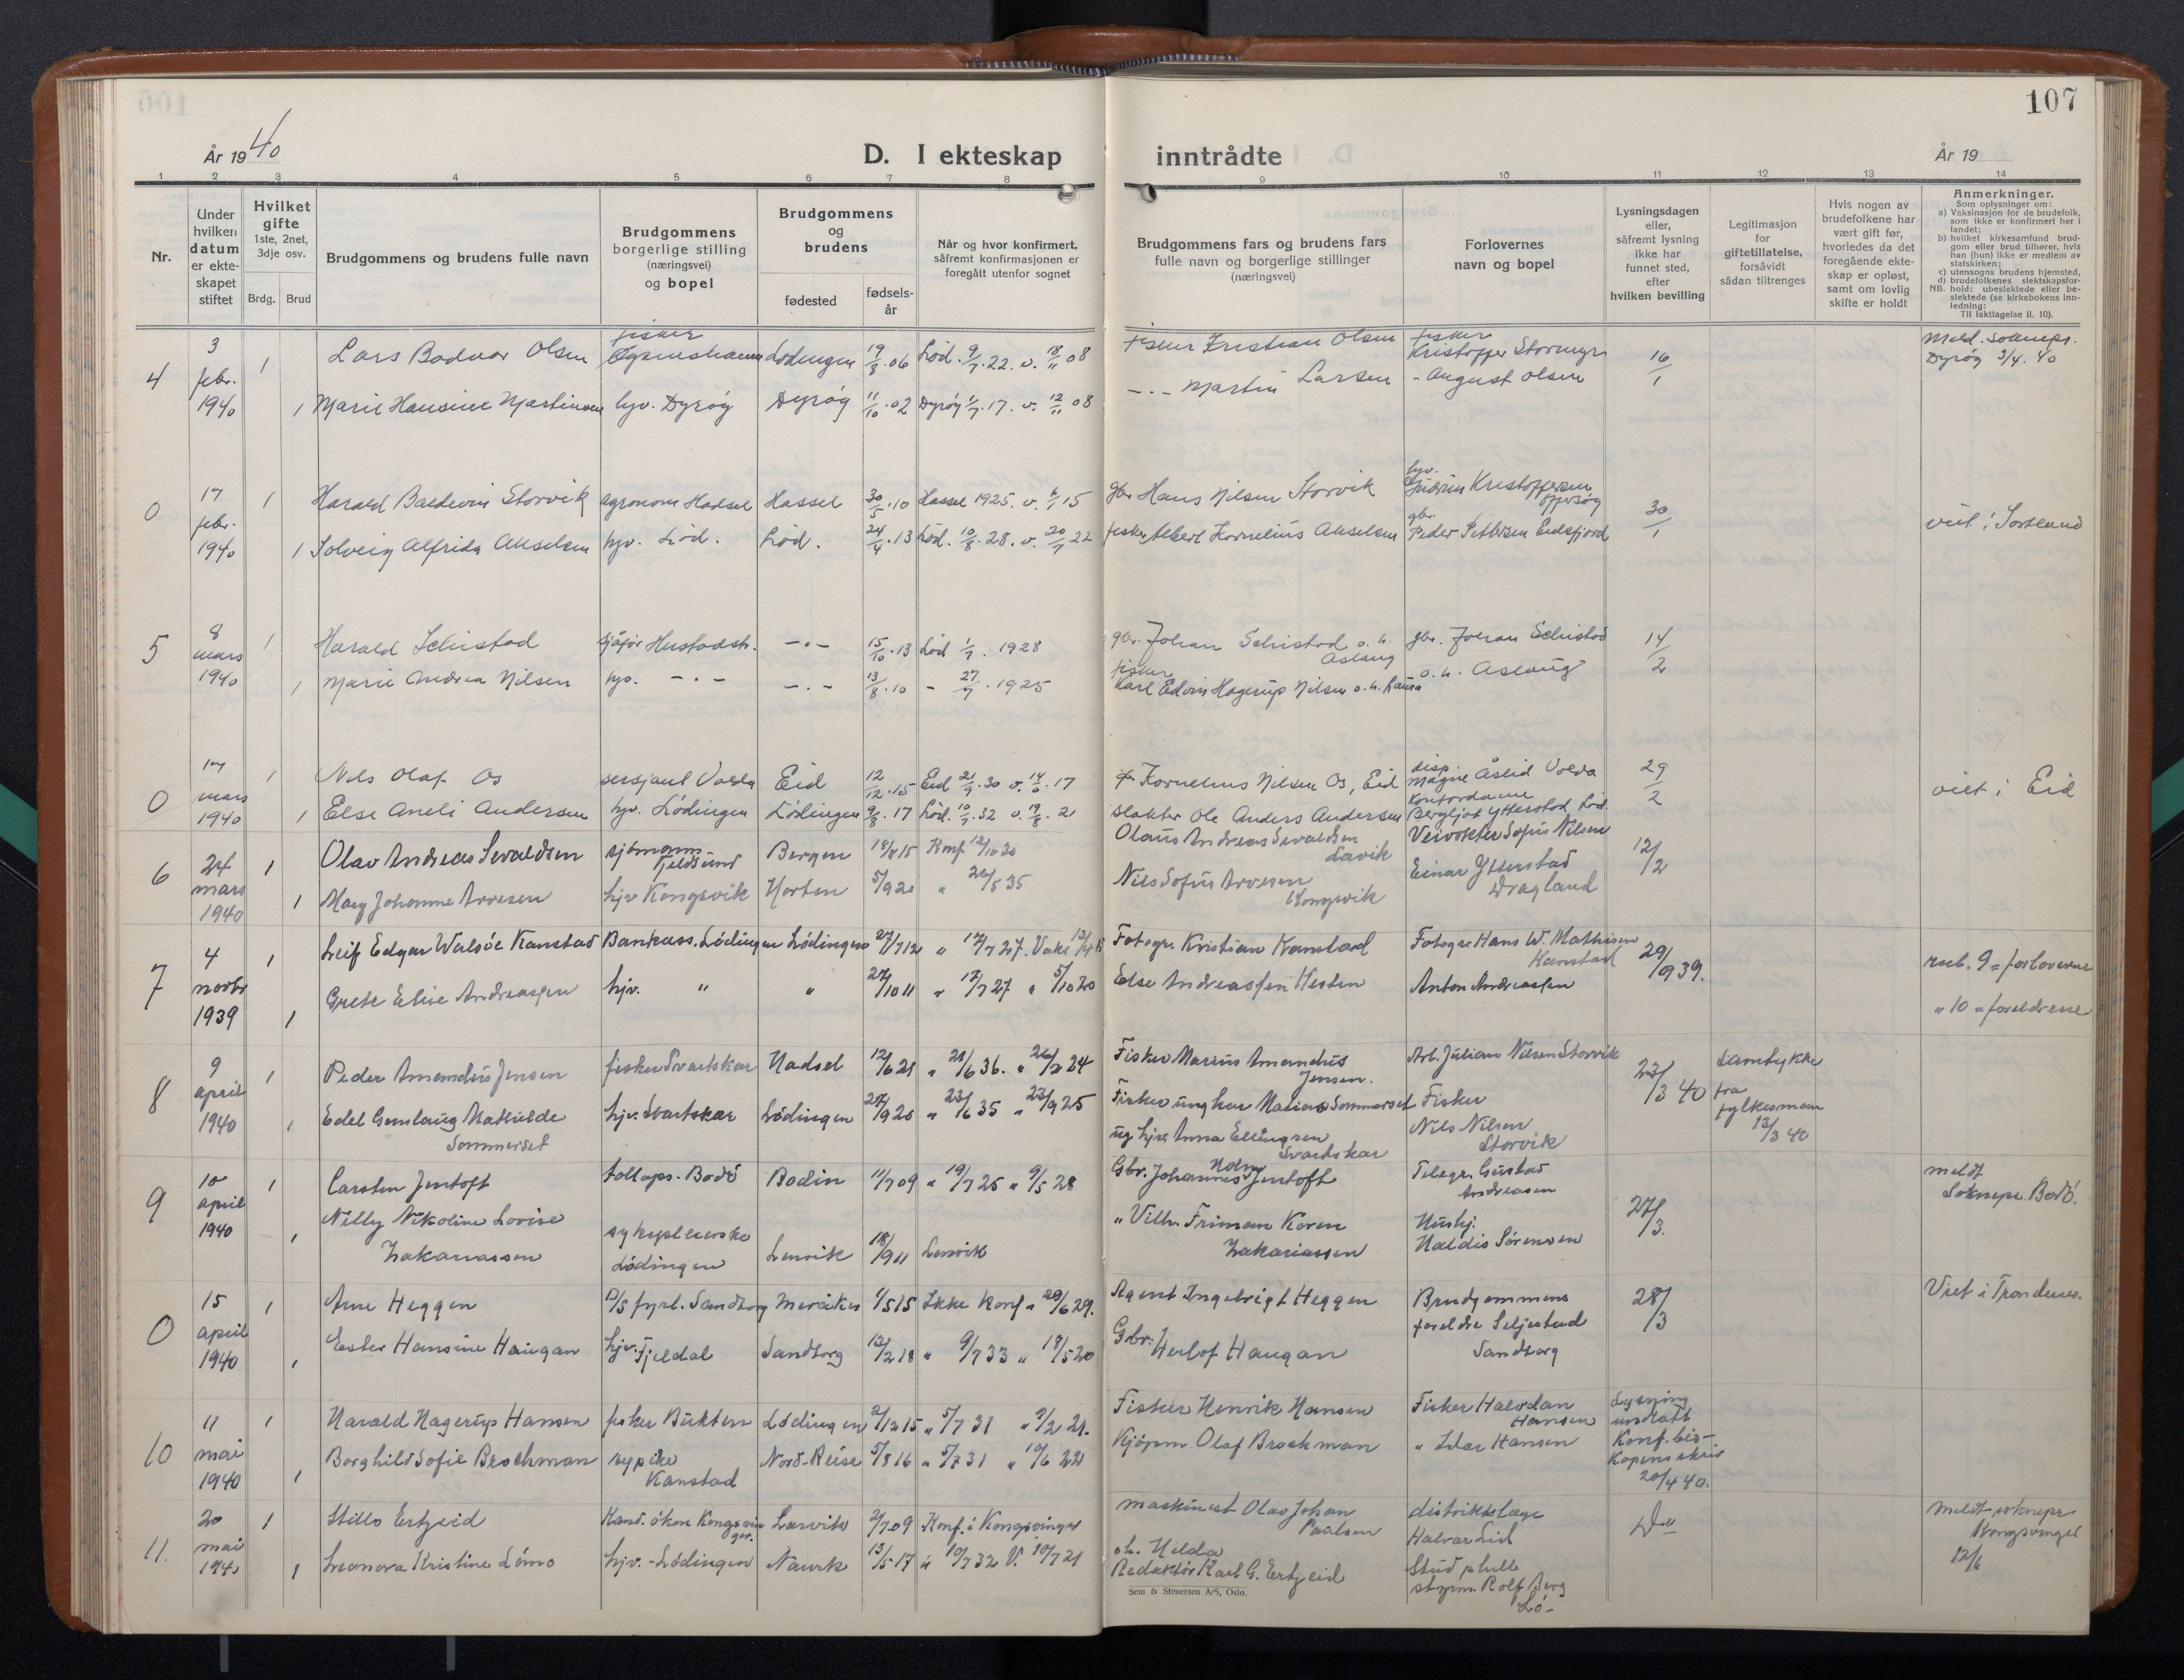 107
År 1940
D. I ekteskap inntrådte
År 19
1 2 3 4 5 6 7 8 9 10 11 12 13 14
Nr.
Under hvilken datum er ekte-skapet stiftet
Hvilket gifte 1ste, 2net, 3dje osv.
Brdg. Brud
Brudgommens og brudens fulle navn
Brudgommens borgerlige stilling (næringsvei) og bopel
Brudgommens og brudens
fødested
fødsels-år
Når og hvor konfirmert, såfremt konfirmasjonen er foregått utenfor sognet
Brudgommens fars og brudens fars fulle navn og borgerlige stillinger (næringsvei)
Forlovernes navn og bopel
Lysningsdagen eller, såfremt lysning ikke har funnet sted, efter hvilken bevilling
Legitimasjon for giftetillatelse, forsåvidt sådan tiltrenges
Hvis nogen av brudefolkene har vært gift før, hvorledes da det foregående ekte-skap er opløst, samt om lovlig skifte er holdt
Anmerkninger.
Som oplysninger om:
a) Vaksinasjon for de brudefolk, som ikke er konfirmert her i landet;
b) hvilket kirkesamfund brud-gom eller brud tilhører, hvis han (hun) ikke er medlem av statskirken;
c) utensogns brudens hjemsted,
d) brudefolkenes slektskapsfor-hold: ubeslektede eller be-slektede (se kirkebokens inn-ledning:
NB.
Til iakttagelse II. 10).
4 3 febr. 1940 1 Lars Bodvar Olsen fisker Lødingen 19/8.06 Lød. 9/7.22. v. 18/11 08 fisker Kristian Olsen fisker Kristoffer Stormyr 16/1 Meld. soknepr. Dyrøy 3/4.40
1 Marie Hansine Martinsen hjv. Dyrøy Dyrøy 11/10.02 Dyrøy 1/7.17. v. 12/11 08 -"- Martin Larsen - August Olsen
0 17 febr. 1940 1 Harald Baldevin Storvik agronom Hadsel Hassel 30/5.10 Hassel 1925. v. 6/1 15 gbr. Hans Nilsen Storvik hjv. Gudrun Kristoffersen 30/1 viet i Sortland
1 Solveig Alfrida Akselsen hjv. Lød. Lød. 24/4.13 Lød. 10/8.28. v. 20/7 22 fisker Albert Kornelius Akselsen gbr. Peder Pettersen Eidsfjord
5 8 mars 1940 1 Harald Selustad sjåfør -"- 15/10.13 Lød 1/7. 1928 gbr. Johan Selustad o. h. Aslaug gbr. Johan Selustad 14/2
1 Marie Andrea Nilsen hjv. -"- -"- 13/8.10 - 27/7.1925 fisker Karl Edvin Hagerup Nilsen o. h. Laura o. h. Aslaug
0 17 mars 1940 1 Nils Olaf Os sersjant Volda Eid 12/12.15 Eid 21/9.30 v. 14/6.17 Kornelius Nilsen Os, Eid disp. Magne Åslid Volda 29/2 viet i Eid
1 Else Aneli Andersen hjv. Lødingen Lødingen 9/8.17 Lød. 10/7.32 v. 19/8.2 slakter Ole Anders Andersen kontordame Bergljot Ytterstad Lød.
6 24 mars 1940 1 Olav Andreas Sevaldsen sjömann Tjeldsund Bergen 18/8 15 Konf 12/10 30 Olaus Andreas Sevaldsen Lavik Veivokter Sofus Nilsen 12/2
1 Mary Johanne Arvesen hjv Kongsvik Horten 5/9 20 " 26/5 35 Nils Sofus Arvesen Kongsvik Einar Ytterstad Dragland
7 4 novbr 1939 1 Leif Edgar Walsöe Kanstad Bankass. Lödingen Lödingen 27/7 12 " 17/7 27. Fotogr. Kristian Kanstad Fotogr. Hans W. Mathisen Kanstad 29/9 39. rub. 9 = forloverne
1 Grete Elise Andreassen hjv. " " 27/10 11 " 17/7 27 " 5/10 20 Else Andreassen Hesten Anton Andreassen " 10 = foreldrene
8 9 april 1940 1 Peder Amandus Jensen fisker Svartskar Hadsel 12/6 21 " 21/6 36. " 26/2 24 Fisker Marius Amandus Jensen. Arb. Julian Nilsen Storvik 23/3 40 Samtykke fra fylkesman 13/3 40
1 Edel Gunlaug Mathilde Sommerset hjv. Svartskar Lödingen 27/9 20 " 23/6 35 " 23/9 25 Fisker ungkar Mathias Sommerset ug hjv Anna Ellingsen Svartskar Fisker Nils Nilsen Storvik
9 10 april 1940 1 Carsten Jentoft tollops. Bodö Bodin 11/7 09 " 19/7 25 " 9/5 28 Gbr. Johannes Holm Jentoft Telegr. Gustav Andreasen 27/3. meldt Soknepr. Bodö.
1 Nelly Nikoline Lovise Zakariassen sykepleierske Lödingen Lenvik 18/9 11 Lenvik " Vilh. Friman Koren Zakariassen Hushj. Haldis Sörensen
0 15 april 1940 1 Arne Heggen D/S fyrb. Sandtorg Meråker 1/5 15 Ikke konf " 20/6 29. Agent Ingebrigt Heggen Brudgommens foreldre Seljestad Sandtorg 28/3 Viet i Trondenes.
1 Ester Hansine Haugan hjv. Fjeldal Sandtorg 12/2 18 " 9/7 33 " 19/5 20 Gbr: Herlof Haugan
10 11 mai 1940 1 Harald Hagerup Hansen fisker Bukten Lödingen 2/12 15 " 5/7 31 " 9/2 21. Fisker Henrik Hansen Fisker Halvdan Hansen Lysning undlatt Konf. bis-kopens skriv 20/4 40.
1 Borghild Sofie Brochman sypike Kanstad Nord-Reisa 5/8 16 " 5/7 31 " 10/6 22 Kjöpm Olaf Brochman " Edar Hansen
11. 20 mai 1940 1 Stillo Ertzeid Kand. ökon Kongsvinger. Larvik 2/7 09 Konf. i Kongsvinger maskinist Olav Johan Paalsen oh. Hilda distriktslæge Halvar Lid Do meldt soknepr Kongsvinger 12/6
1 Leonora Kristine Lömo hjv. - Lödingen Narvik 13/5 17 " 10/7 32 V. 10/7 21 Redaktör Karl G. Ertzeid Stud philol styrm. Rolf Berg Lö-
Sem & Stenersen A/S, Oslo.